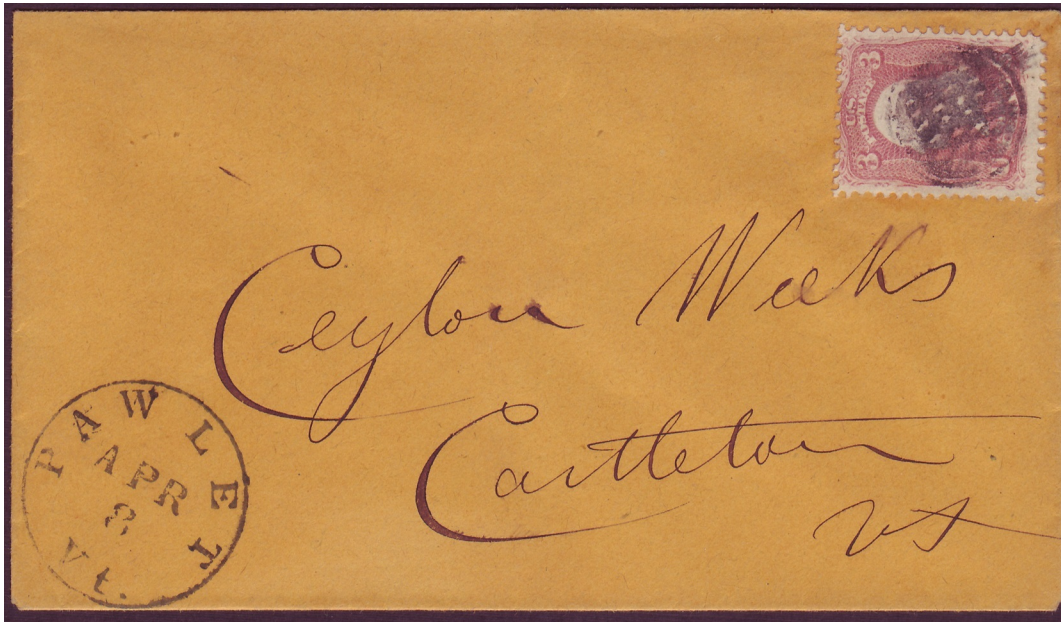 3 U.S. POSTAGE 3
Ceylon Weeks
Castleton
Vt
PAWLET
APR
8
Vt.